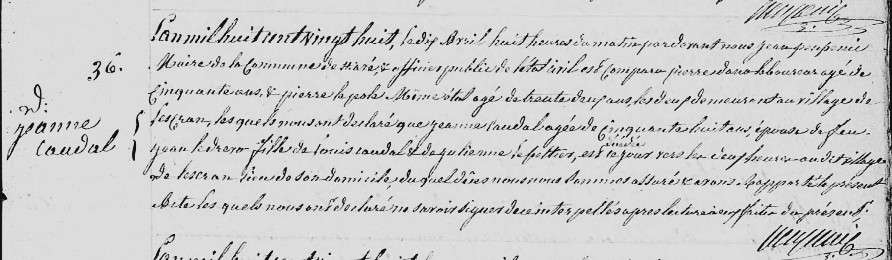 36.
d:
jeanne
Caudal
L'an mil huit cent vingt huit, le dix Avril huit heures du matin par devant nous jean
Maire de la Commune de & officier public de l'état civil est Comparu pierre laboureur agé de
Cinquante ans, & pierre le Même état agé de trente deux ans, les deux demeurant au village de
lescran, les quels nous ont declaré que jeanne Caudal agée de Cinquante huit ans, épouse de feu
jean fille de Louis Caudal & de julienne le peltier, est décédé
ce jour vers les deux heures audit village
de lescran lieu de son domicile, du quel décès nous nous sommes assuré & avons Rapporté le présent
Acte les quels nous ont declaré ne savoir signer de ce interpellés apres lecture à eux faite du présent.
L'an mil huit cent vingt huit